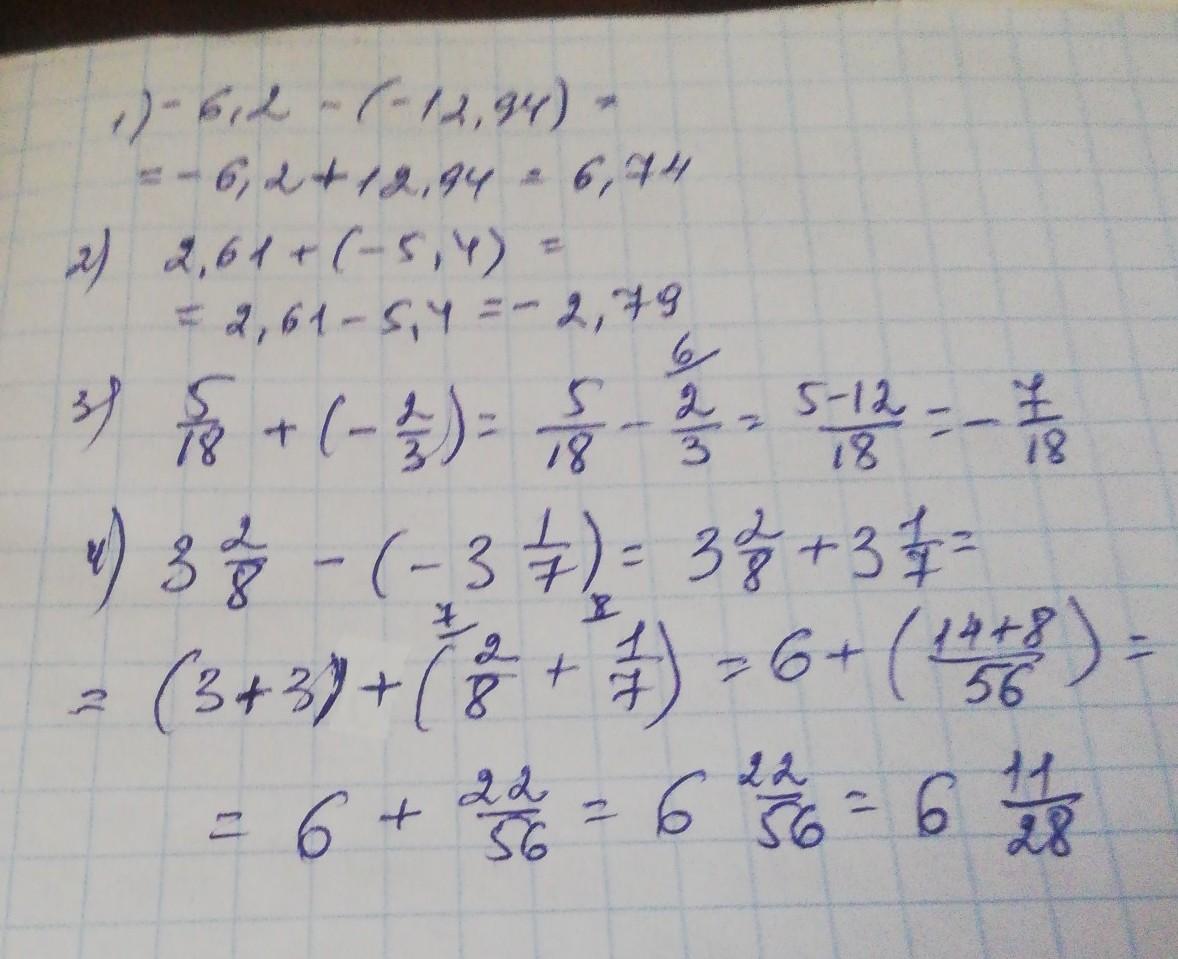 1) - 6,2 - (-12,94) =
= - 6,2 + 12,94 = 6,74
2) 2,61 + (-5,4) =
= 2,61 - 5,4 = - 2,79
3) 5/18 + (- 2/3) = 5/18 - 2/3 6/ = 5-12/18 = - 7/18
4) 3 2/8 - (- 3 1/7) = 3 2/8 + 3 1/7 =
= (3+3) + (7/ 2/8 + 8/ 1/7) = 6 + (14+8/56) =
= 6 + 22/56 = 6 22/56 = 6 11/28